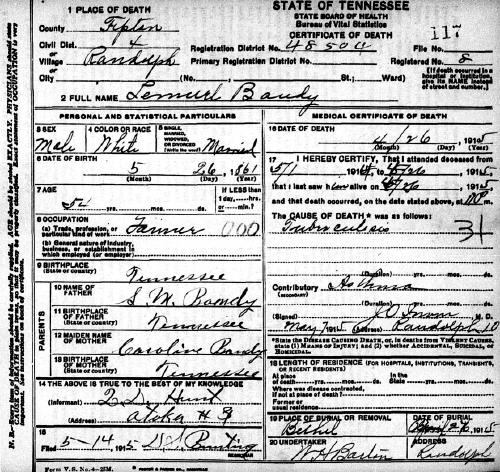 STATE OF TENNESSEE
STATE BOARD OF HEALTH
Bureau of Vital Statistics
CERTIFICATE OF DEATH
1 PLACE OF DEATH
County Tipton
Civil Dist. 4
Village Randolph
or
City (No. St.; Ward)
Registration District No. 48504
Primary Registration District No.
117
File No.
Registered No. 8
(If death occurred in a hospital or institution, give its NAME instead of street and number.)
2 FULL NAME Lemuel Bandy
PERSONAL AND STATISTICAL PARTICULARS
3 SEX Male
4 COLOR OR RACE White
5 SINGLE, MARRIED, WIDOWED, OR DIVORCED (Write the word) Married
6 DATE OF BIRTH
5 26 1861
(Month) (Day) (Year)
7 AGE
54 yrs. mos. ds.
If LESS than 1 day, hrs. or min.?
8 OCCUPATION
(a) Trade, profession, or particular kind of work Farmer 000
(b) General nature of industry, business, or establishment in which employed (or employer)
9 BIRTHPLACE
(State or country) Tennessee
PARENTS
10 NAME OF FATHER S. M. Bandy
11 BIRTHPLACE OF FATHER
(State or country) Tennessee
12 MAIDEN NAME OF MOTHER Caroline Bandy
13 BIRTHPLACE OF MOTHER
(State or country) Tennessee
14 THE ABOVE IS TRUE TO THE BEST OF MY KNOWLEDGE
(Informant) Hunt
(Address) Atoka
15
Filed 5-14, 1915
REGISTRAR
Form V. S. No. 4-25M.
MEDICAL CERTIFICATE OF DEATH
16 DATE OF DEATH
4/26, 1915
(Month) (Day) (Year)
17 I HEREBY CERTIFY, That I attended deceased from
5/1 191 , to 4/26, 1915
that I last saw h alive on 4/26, 1915
and that death occurred, on the date stated above, at m.
The CAUSE OF DEATH* was as follows:
Tuberculosis
31
(Duration) yrs. mos. ds.
Contributory Asthma
(SECONDARY)
(Duration) yrs. mos. ds.
M. D.
May 7, 1915 (Address) Randolph
*State the DISEASE CAUSING DEATH, or, in deaths from VIOLENT CAUSES, state (1) MEANS OF INJURY; and (2) whether ACCIDENTAL, SUICIDAL, or HOMICIDAL.
18 LENGTH OF RESIDENCE (FOR HOSPITALS, INSTITUTIONS, TRANSIENTS, OR RECENT RESIDENTS)
At place of death yrs. mos. ds. In the State yrs. mos. ds.
Where was disease contracted, if not at place of death?
Former or usual residence
19 PLACE OF BURIAL OR REMOVAL
Bethel
DATE OF BURIAL
1915
20 UNDERTAKER
W. H. Barton
ADDRESS
Randolph